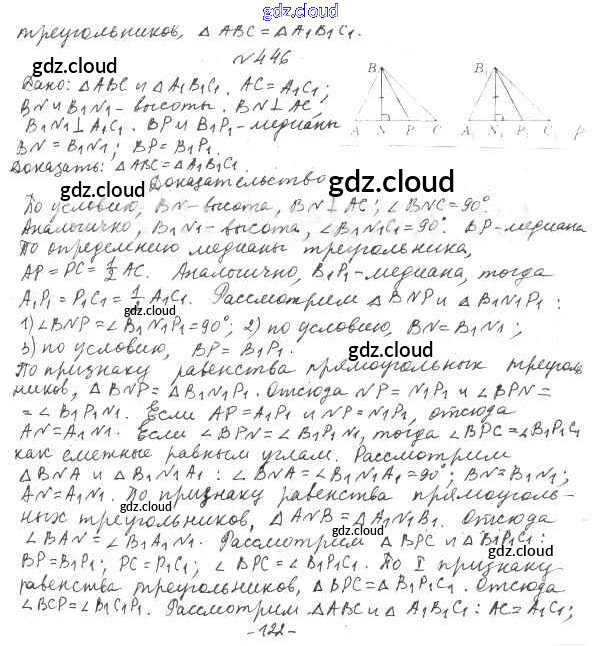 gdz.cloud
треугольников, △ABC = △A₁B₁C₁.
№446
gdz.cloud
gdz.cloud
Дано: △ABC и △A₁B₁C₁. AC = A₁C₁;
BN и B₁N₁ - высоты. BN ⊥ AC;
gdz.cloud
B₁N₁ ⊥ A₁C₁. BP и B₁P₁ - медианы
BN = B₁N₁; BP = B₁P₁.
Доказать: △ABC = △A₁B₁C₁.
B B₁
A N P C A₁ N₁ P₁ C₁ P
Доказательство
gdz.cloud
gdz.cloud
По условию, BN - высота, BN ⊥ AC; ∠BNC = 90°.
Аналогично, B₁N₁ - высота, ∠B₁N₁C₁ = 90°. BP - медиана
По определению медианы треугольника,
gdz.cloud
AP = PC = ½ AC. Аналогично, B₁P₁ - медиана, тогда
A₁P₁ = P₁C₁ = ½ A₁C₁. Рассмотрим △BNP и △B₁N₁P₁:
gdz.cloud
1) ∠BNP = ∠B₁N₁P₁ = 90°; 2) по условию, BN = B₁N₁;
3) по условию, BP = B₁P₁.
gdz.cloud
По признаку равенства прямоугольных треуголь
ников, △BNP = △B₁N₁P₁. Отсюда NP = N₁P₁ и ∠BPN =
= ∠B₁P₁N₁. Если AP = A₁P₁ и NP = N₁P₁, отсюда
gdz.cloud
AN = A₁N₁. Если ∠BPN = ∠B₁P₁N₁, тогда ∠BPC = ∠B₁P₁C₁
как смежные равным углам. Рассмотрим
△BNA и △B₁N₁A₁: ∠BNA = ∠B₁N₁A₁ = 90°; BN = B₁N₁;
AN = A₁N₁. По признаку равенства прямоуголь-
gdz.cloud
ных треугольников, △ANB = △A₁N₁B₁. Отсюда
∠BAN = ∠B₁A₁N₁. Рассмотрим △BPC и △B₁P₁C₁:
gdz.cloud
BP = B₁P₁; PC = P₁C₁; ∠BPC = ∠B₁P₁C₁. По I признаку
gdz.cloud
равенства треугольников, △BPC = △B₁P₁C₁. Отсюда
∠BCP = ∠B₁C₁P₁. Рассмотрим △ABC и △A₁B₁C₁: AC = A₁C₁;
gdz.cloud
-122-